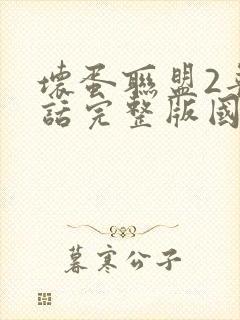 壞蛋聯盟2普
話完整版國
暮寒公子